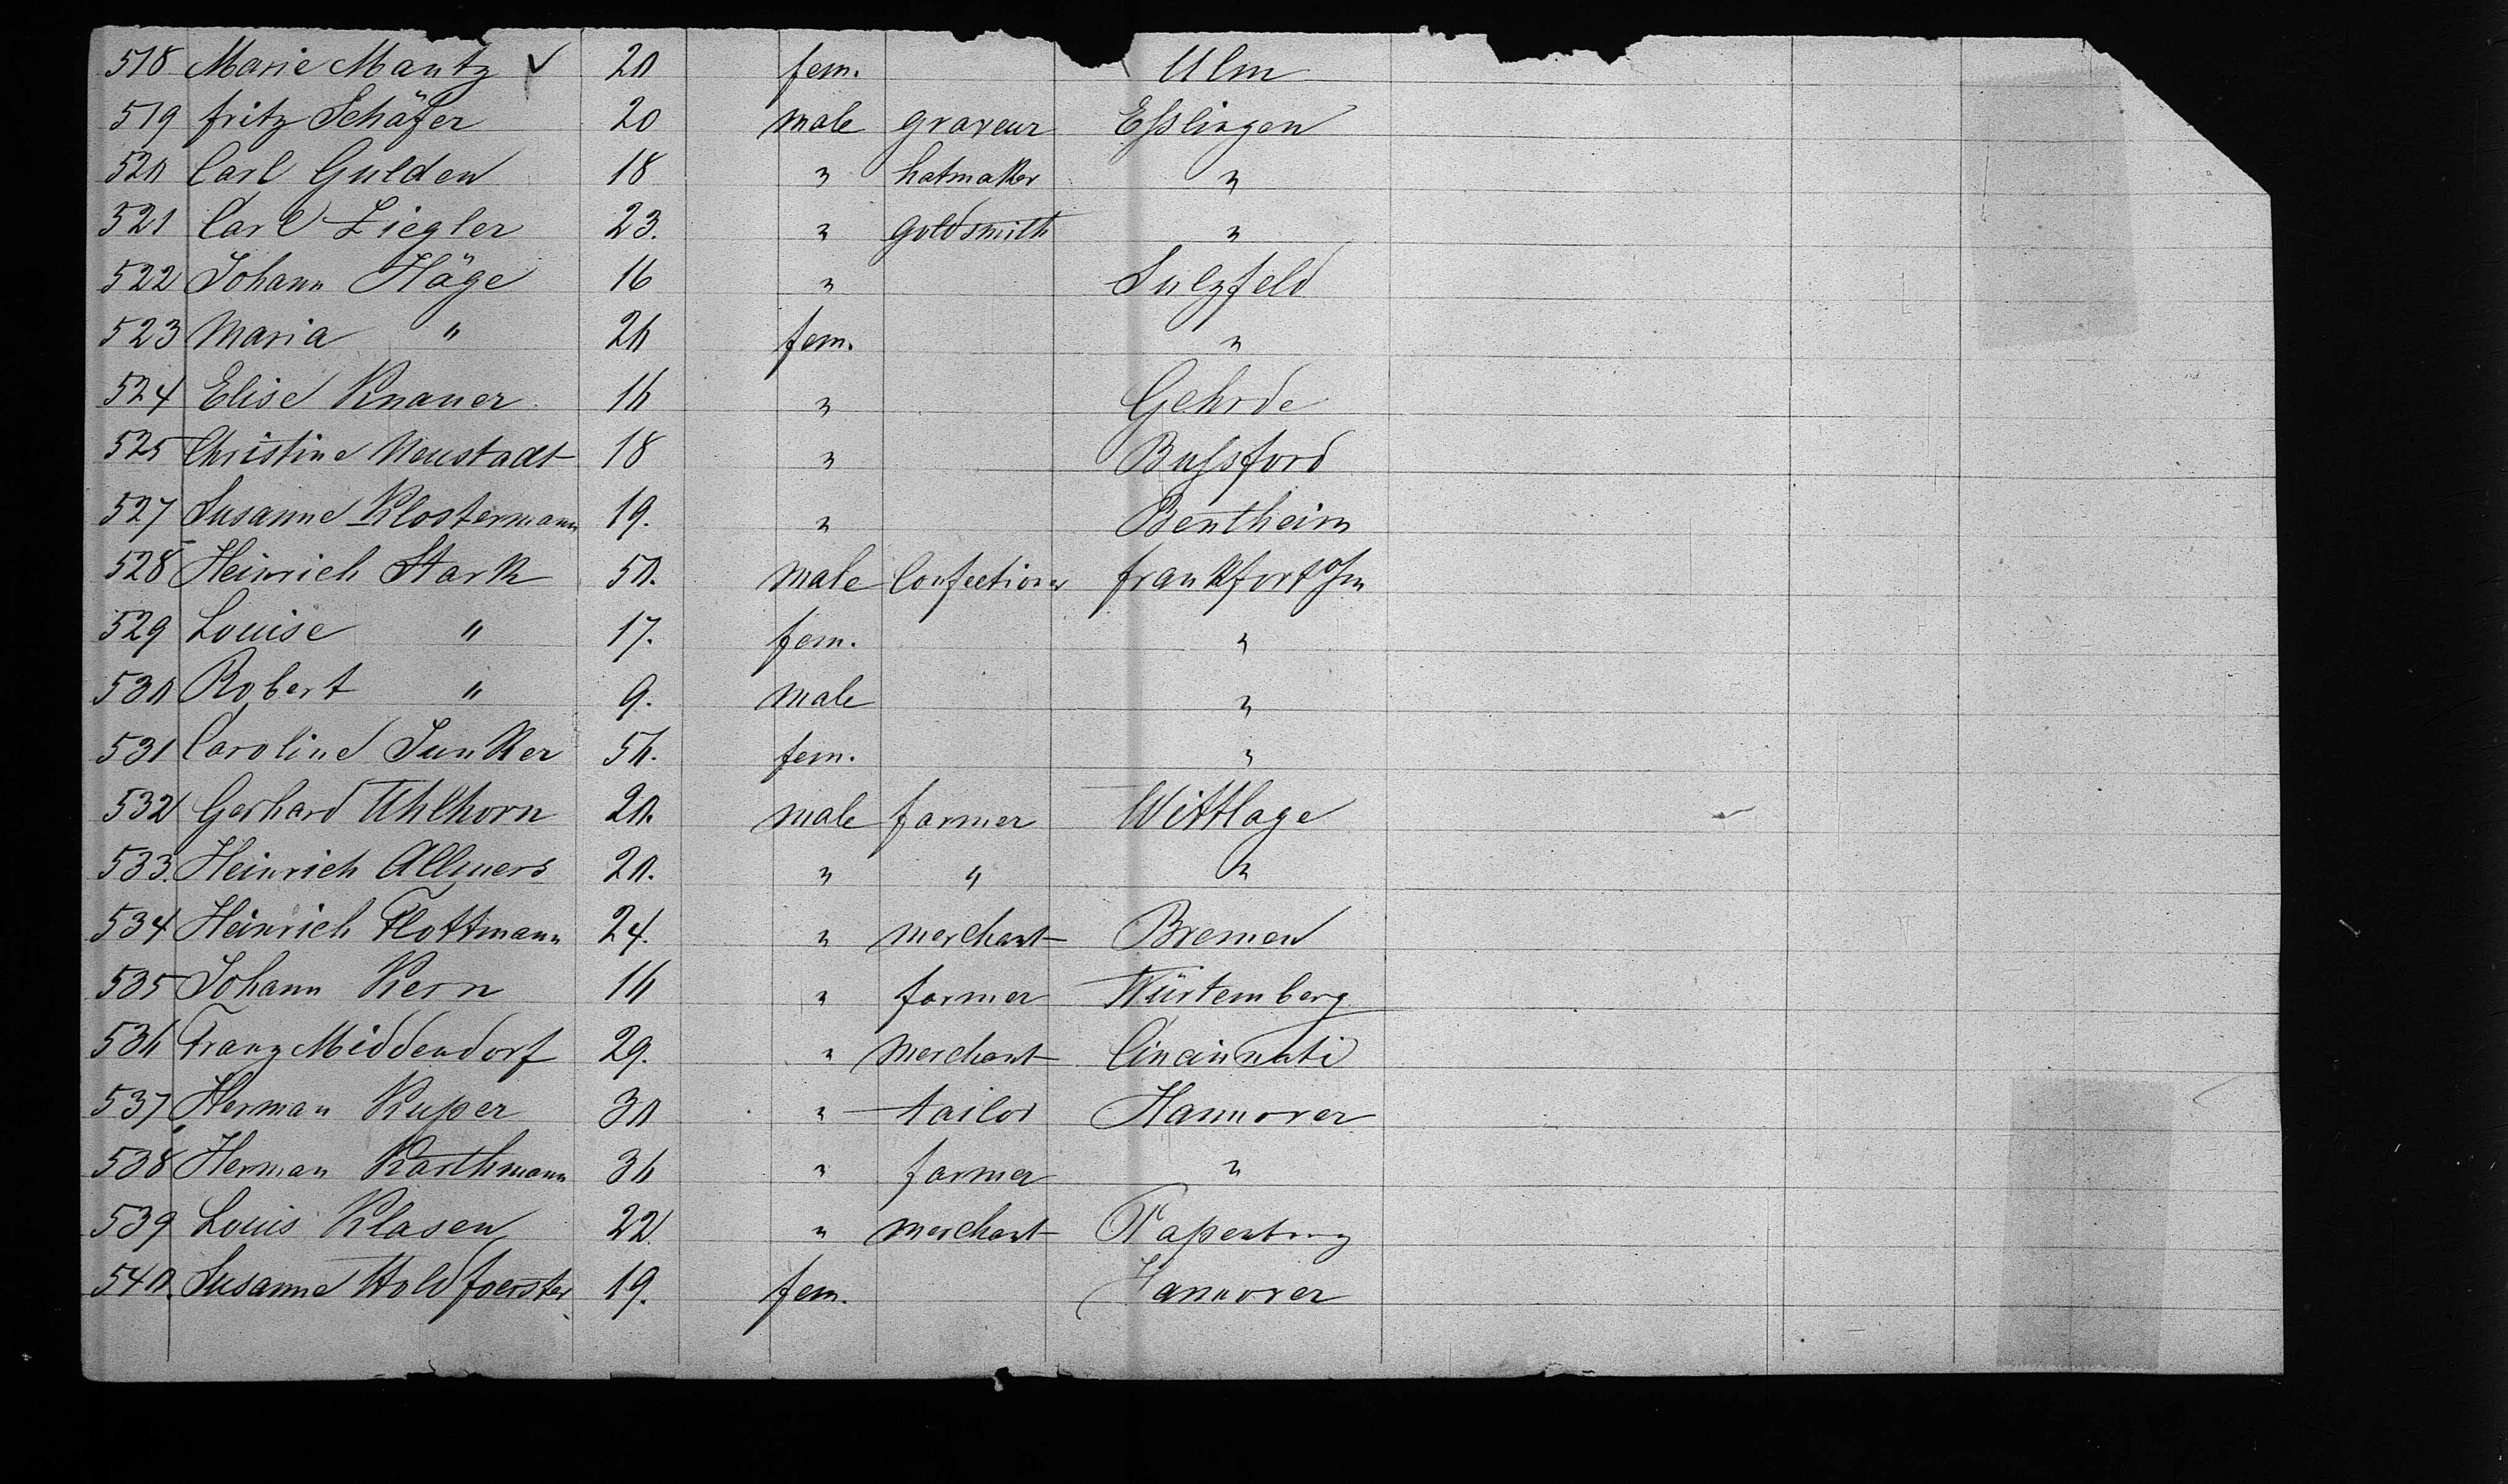 518 Marie Mantz ✓ 20 fem. Ulm
519 Fritz Schäfer 20 male graveur Eßlingen
520 Carl Gulden 18 " hatmaker "
521 Carl Ziegler 23. " goldsmith "
522 Johann Häge 16 " Sulzfeld
523 Maria " 26 fem. "
524 Elise Knauer 16 " Gehrde
525 Christine Neustadt 18 " Bußford
527 Susanne Klostermann 19. " Bentheim
528 Heinrich Stark 50. male Confectioner Frankfort a/m
529 Louise " 17. fem. "
530 Robert " 9. male "
531 Caroline Junker 56. fem. "
532 Gerhard Uhlhorn 20. male farmer Wittlage
533. Heinrich Allmers 20. " " "
534 Heinrich Flottmann 24. " merchant Bremen
535 Johann Kern 16 " farmer Würtemberg
536 Franz Middendorf 29. " merchant Cincinnati
537 Herman Kuper 30 " tailor Hannover
538 Herman Karthmann 36 " farmer "
539 Louis Klasen 22. " merchant Papenburg
540. Susanne Holdfoerster 19. fem. Hannover